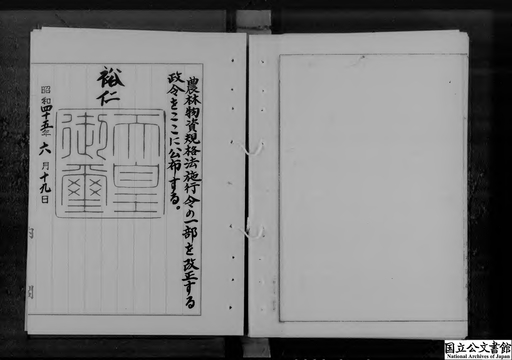 農林物資規格法施行令の一部を改正する
政令をここに公布する。
裕仁
天皇
御璽
昭和四十五年六月十九日
国立公文書館
National Archives of Japan